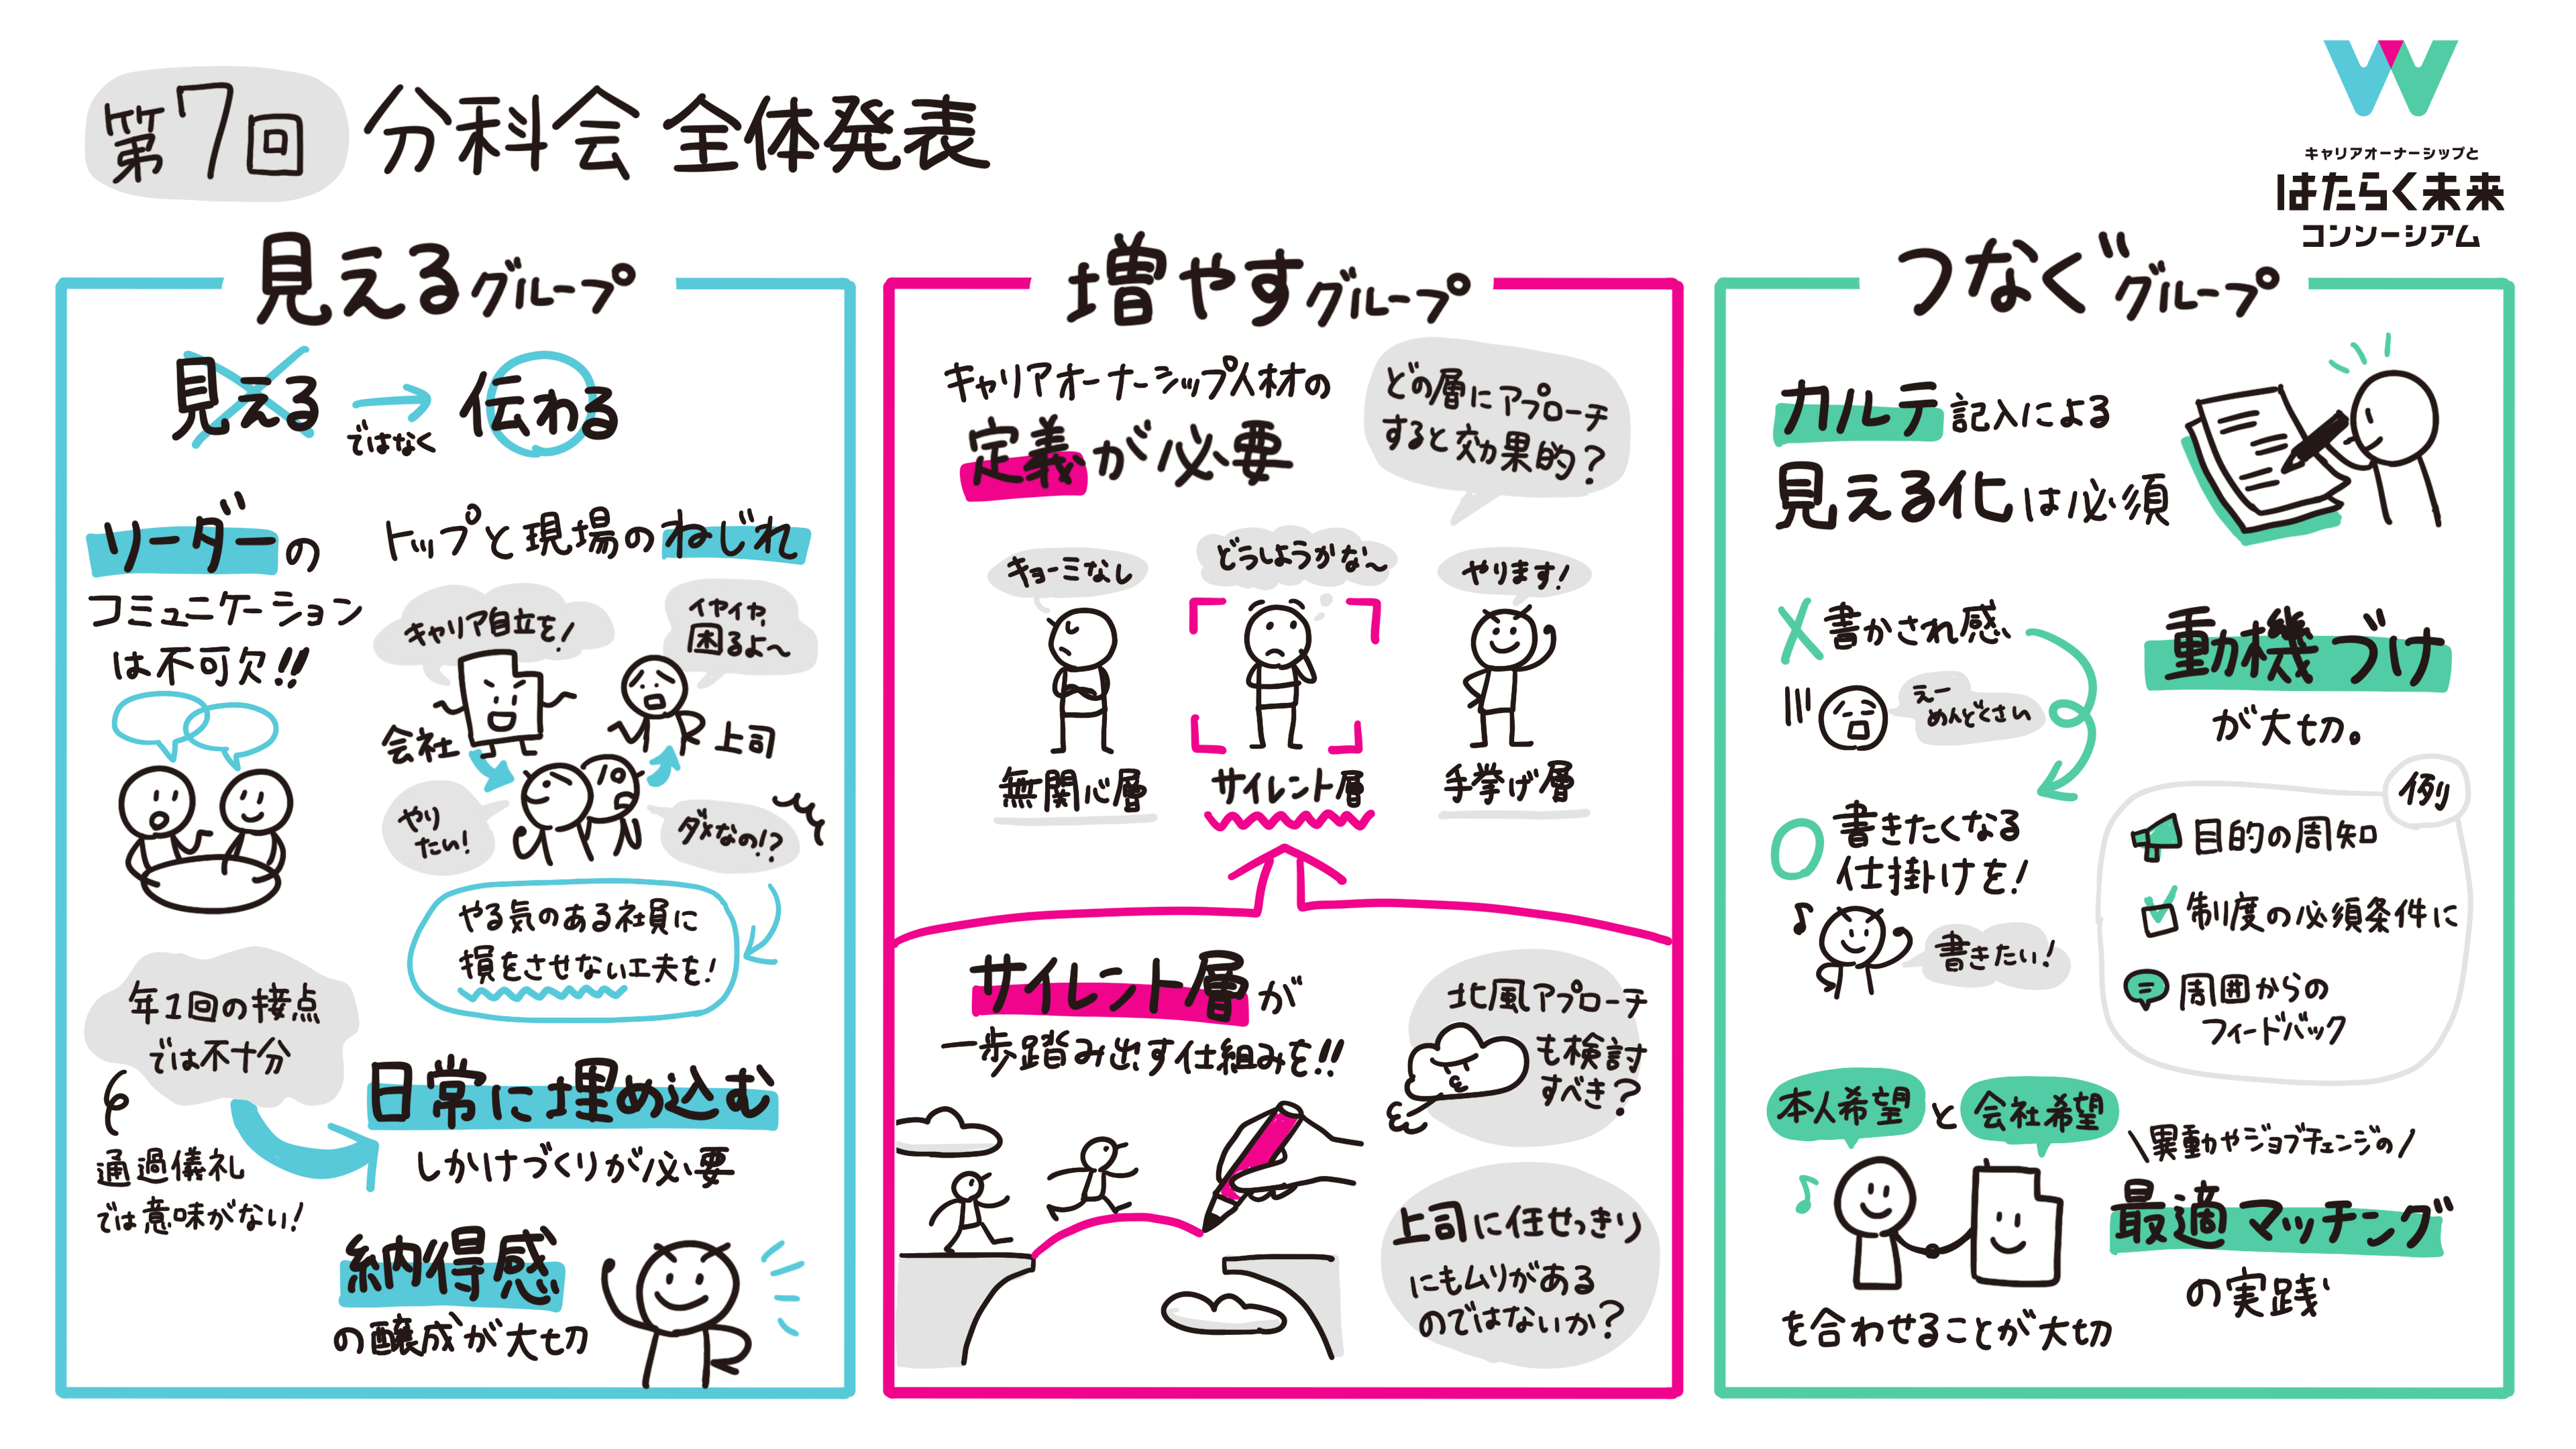 第7回 分科会 全体発表
キャリアオーナーシップと
はたらく未来
コンソーシアム
見えるグループ
見える
ではなく
伝わる
リーダーの
コミュニケーション
は不可欠!!
トップと現場のねじれ
キャリア自立を!
イヤイヤ,
困るよ〜
会社
上司
やり
たい!
ダメなの!?
やる気のある社員に
損をさせない工夫を!
年1回の接点
では不十分
通過儀礼
では意味がない!
日常に埋め込む
しかけづくりが必要
納得感
の醸成が大切
増やすグループ
キャリアオーナーシップ人材の
定義が必要
どの層にアプローチ
すると効果的?
キョーミなし
どうしようかな〜
やります!
無関心層
サイレント層
手挙げ層
サイレント層が
一歩踏み出す仕組みを!!
北風アプローチ
も検討
すべき?
上司に任せっきり
にもムリがある
のではないか?
つなぐグループ
カルテ記入による
見える化は必須
X 書かされ感
えー
めんどくさい
動機づけ
が大切。
O 書きたくなる
仕掛けを!
書きたい!
例
目的の周知
制度の必須条件に
周囲からの
フィードバック
本人希望と会社希望
を合わせることが大切
\異動やジョブチェンジの/
最適マッチング
の実践